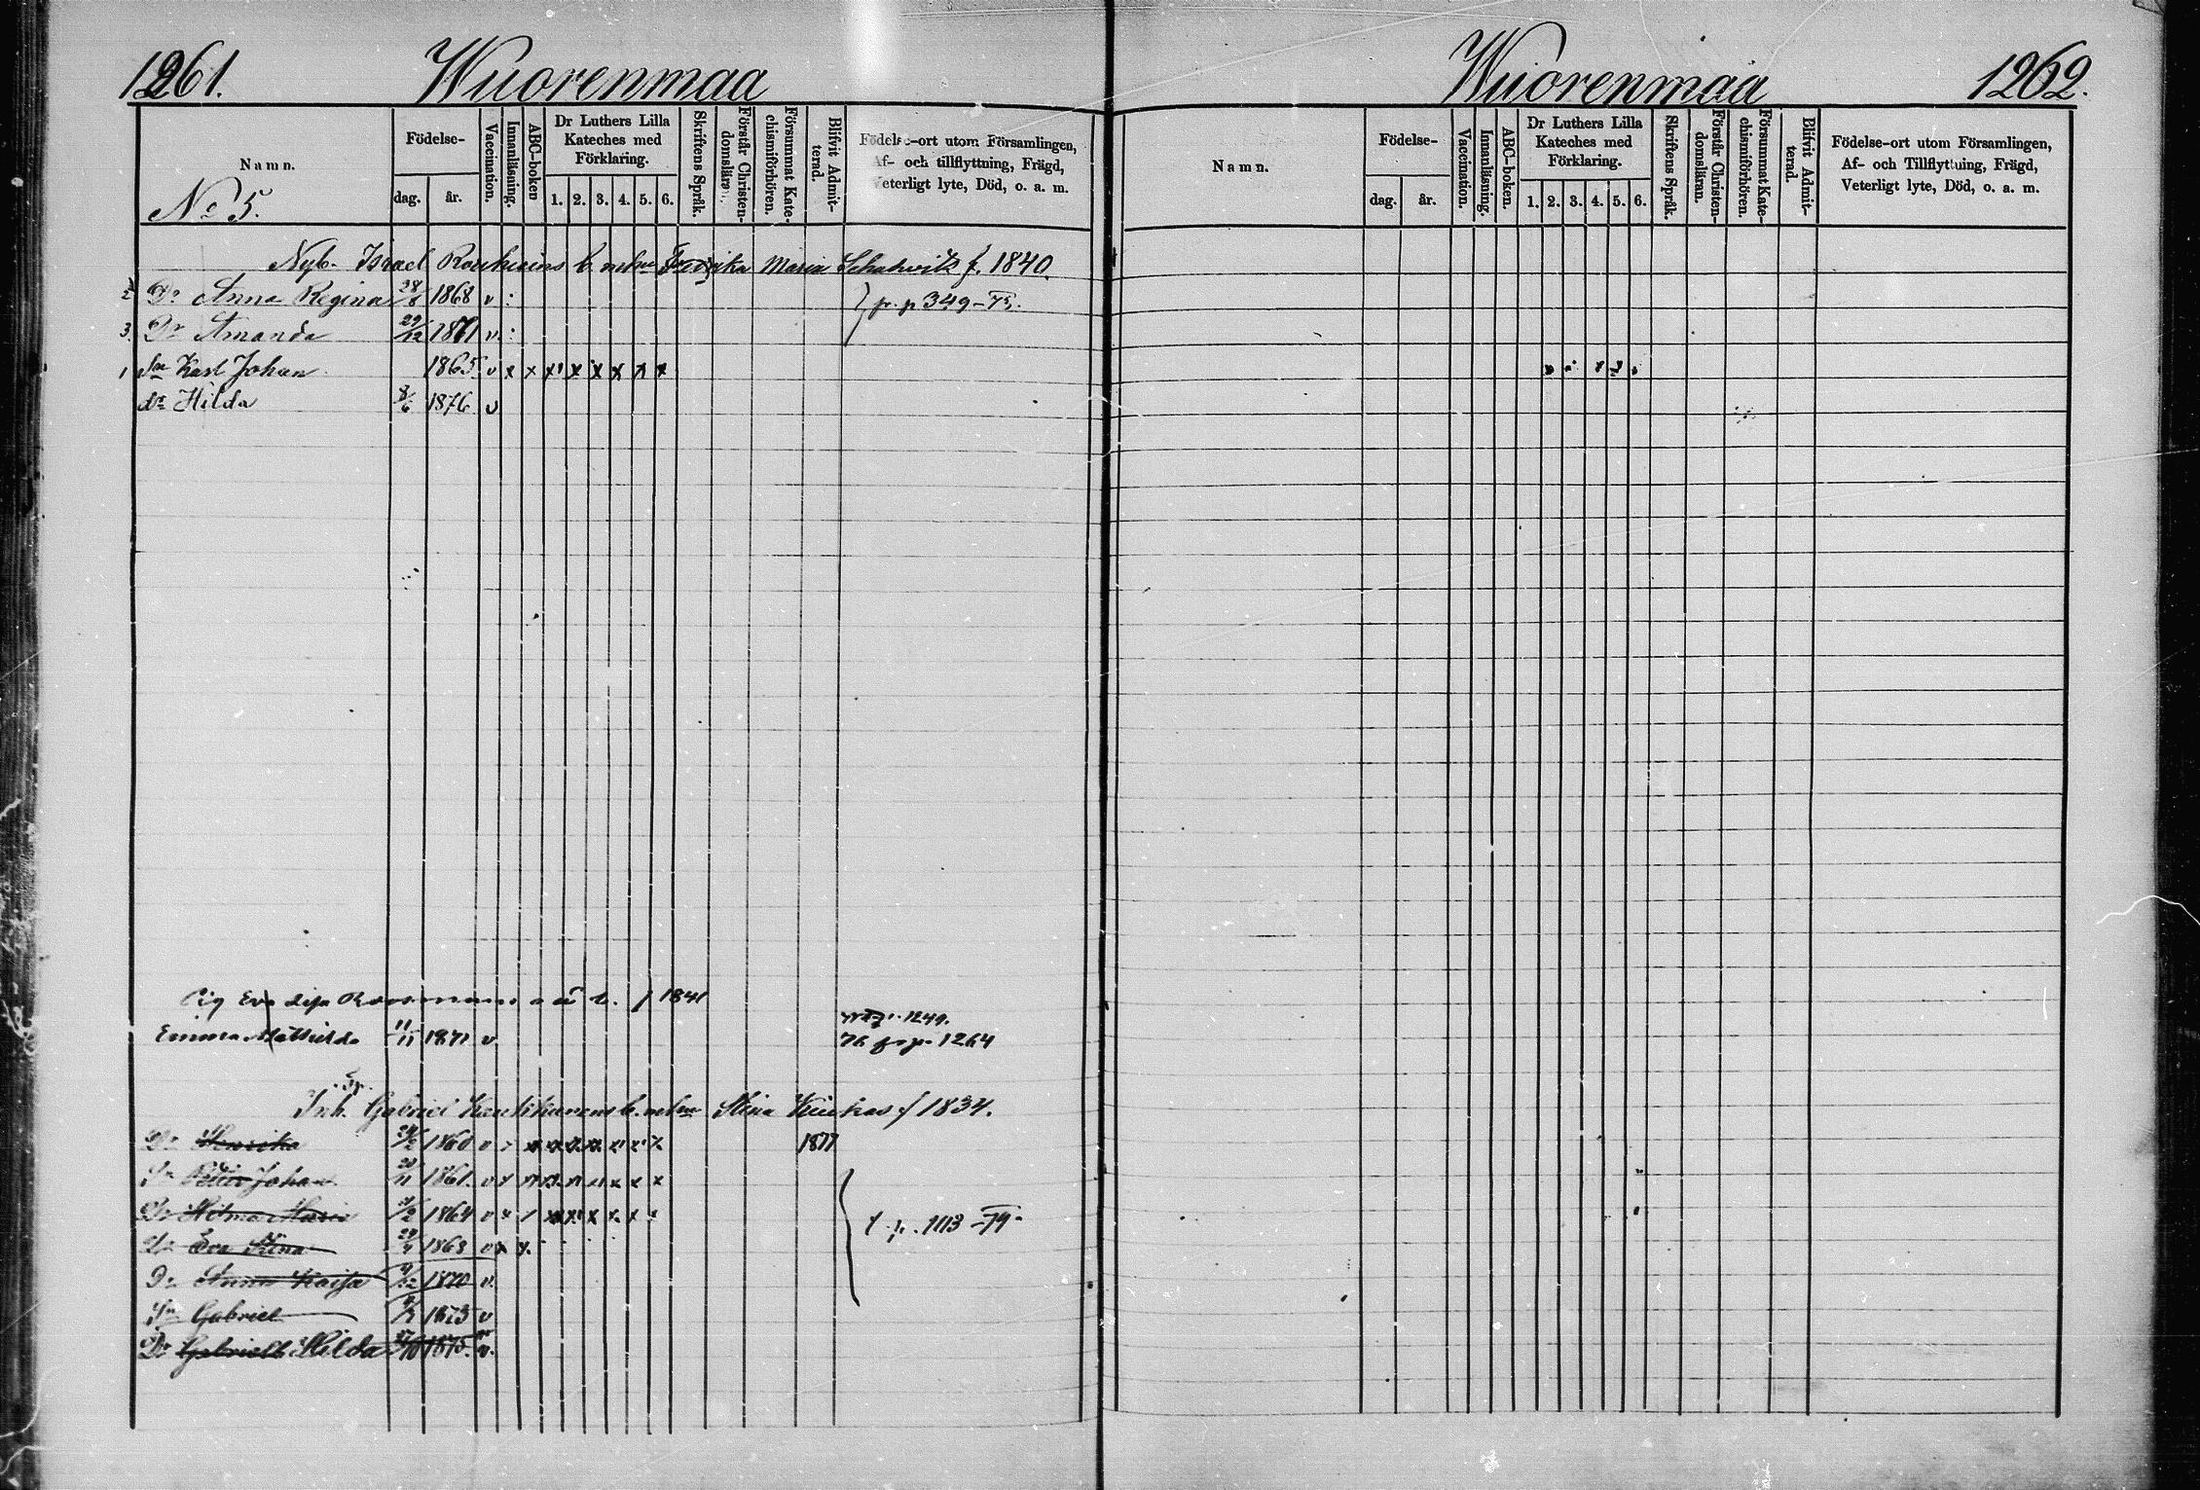 1261. Wuorenmaa
Namn.
No 5.
Födelse-
dag. år.
Vaccination.
Innanläsning.
ABC-boken
Dr Luthers Lilla
Kateches med
Förklaring.
1. 2. 3. 4. 5. 6.
Skriftens Språk.
Förstår Christen-
domslära
Försummat Kate-
chismiförhören.
Blifvit Admit-
terad.
Födelse-ort utom Församlingen,
Af- och tillflyttning, Frägd,
Veterligt lyte, Död, o. a. m.
Nyb. Israel b. Maria f. 1840.
2 Dr Anna Regina 1868 v : fr. p 349-75.
3. Dr Amanda 29/12 1871 v. :
1 Sn Karl Johan 1865 v x x x x x x x x
dr Hilda 8/6 1876 v
Pig Eva Lisa f 1841
p. 1249.
Emma Mathilda 11/11 1871 v 76 fr p. 1264
Inh. Gabriel Stina f 1834.
Dr Henrika 1860 v 1877
Sn Petter Johan 1861. v
Dr Hilma Maria 1864 v
Dr Eva Stina 1868 v x x. p. 1113 -79-
Dr Anna Kaisa 1870 v.
Sn Gabriel 1873 v
Dr Hilda 1875. v.
Wuorenmaa 1262.
Namn.
Födelse-
dag. år.
Vaccination.
Innanläsning.
ABC-boken.
Dr Luthers Lilla
Kateches med
Förklaring.
1. 2. 3. 4. 5. 6.
Skriftens Språk.
Förstår Christen-
domsläran.
Försummat Kate-
chismiförhören.
Blifvit Admit-
terad.
Födelse-ort utom Församlingen,
Af- och Tillflyttning, Frägd,
Veterligt lyte, Död, o. a. m.